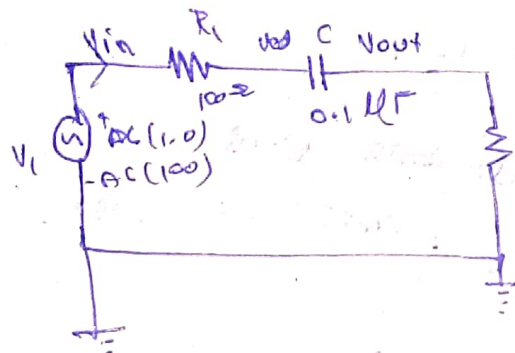 Vin
R₁
C
Vout
100Ω
0.1 μF
V₁
+
AC(1,0)
-AC(100)